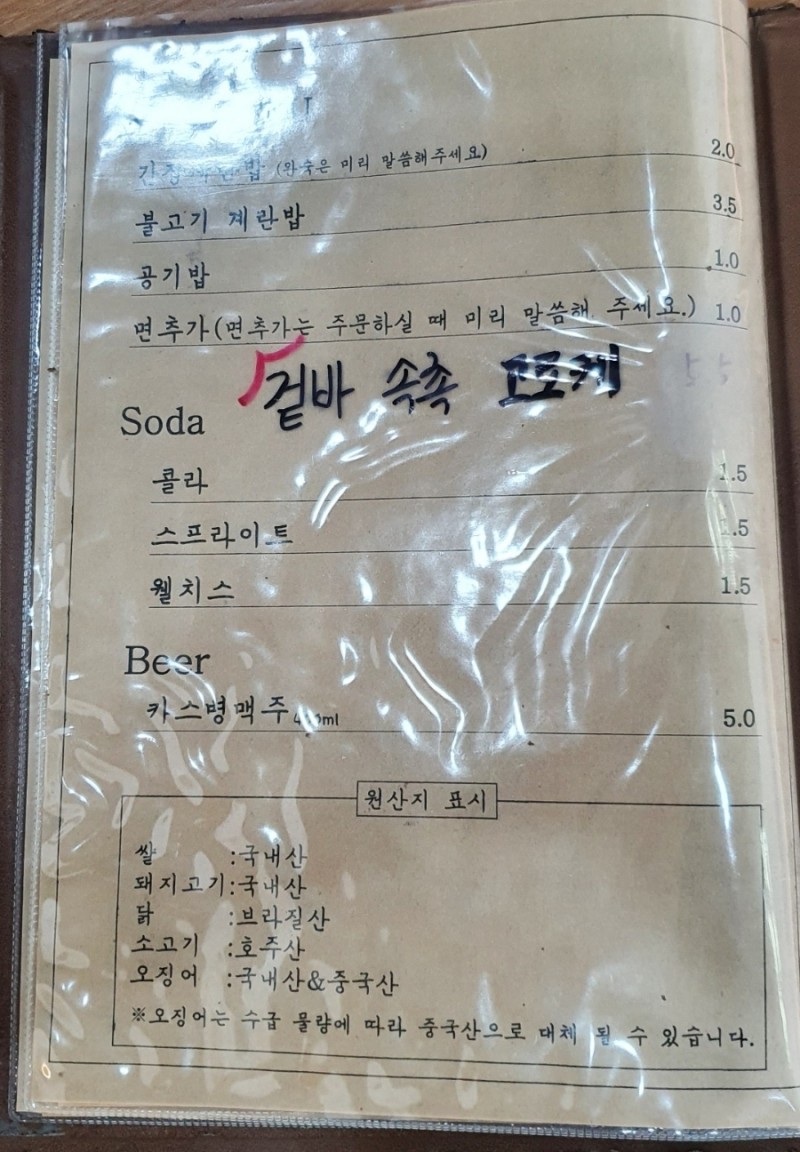 (완숙은 미리 말씀해주세요) 2.0
불고기 계란밥 3.5
공기밥 1.0
면추가(면추가는 주문하실 때 미리 말씀해 주세요.) 1.0
겉바 속촉 고로케 5.5
Soda
콜라 1.5
스프라이트 1.5
웰치스 1.5
Beer
카스병맥주 5.0
원산지 표시
쌀 :국내산
돼지고기:국내산
닭 :브라질산
소고기 :호주산
오징어 :국내산&중국산
※오징어는 수급 물량에 따라 중국산으로 대체 될 수 있습니다.